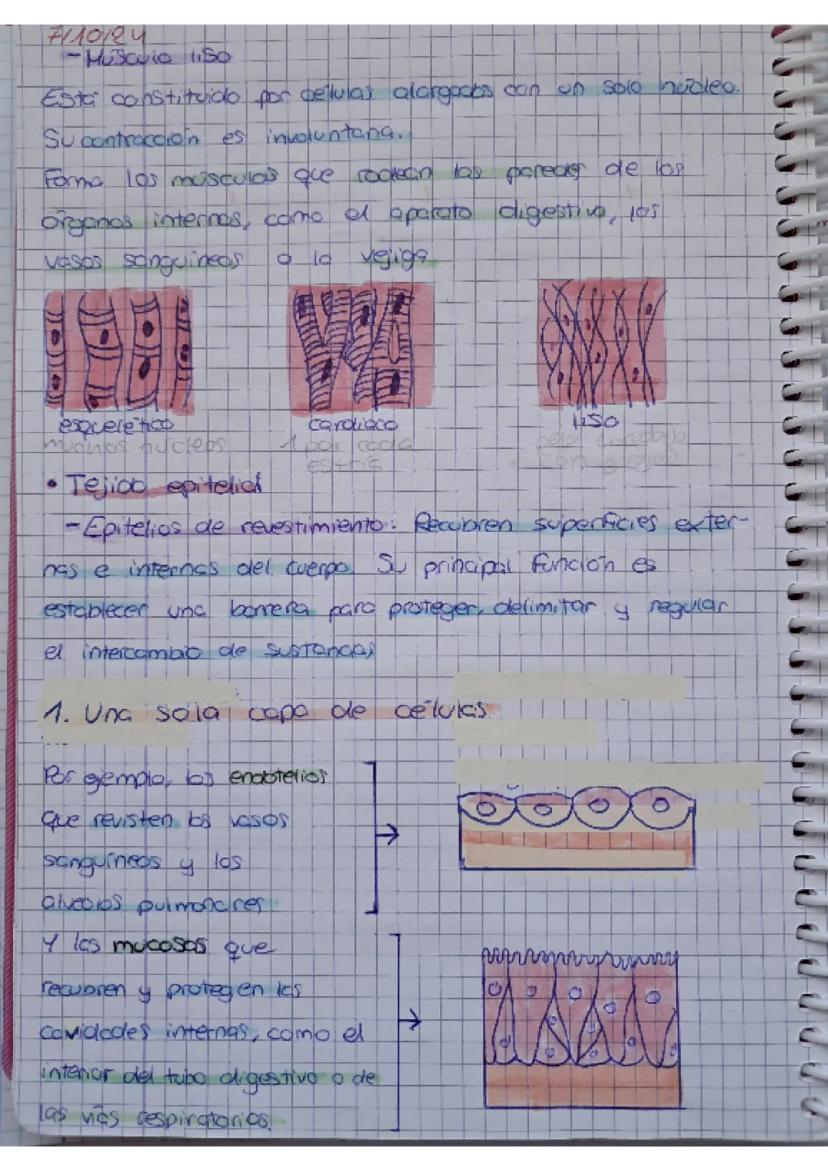 7/10/24
- Músculo liso
Está constituido por células alargadas con un solo núcleo.
Su contracción es involuntaria.
Forma los músculos que rodean las paredes de los
órganos internos, como el aparato digestivo, los
vasos sanguíneos o la vejiga.
esquelético cardíaco liso
muchos núcleos 1 por cada
• Tejido epitelial
- Epitelios de revestimiento: Recubren superficies exter-
nas e internas del cuerpo. Su principal función es
establecer una barrera para proteger, delimitar y regular
el intercambio de sustancias
1. Una sola capa de células.
Por ejemplo, los endotelios
que revisten los vasos
sanguíneos y los
alveolos pulmonares
Y las mucosas que
recubren y protegen las
cavidades internas, como el
interior del tubo digestivo o de
las vías respiratorias.